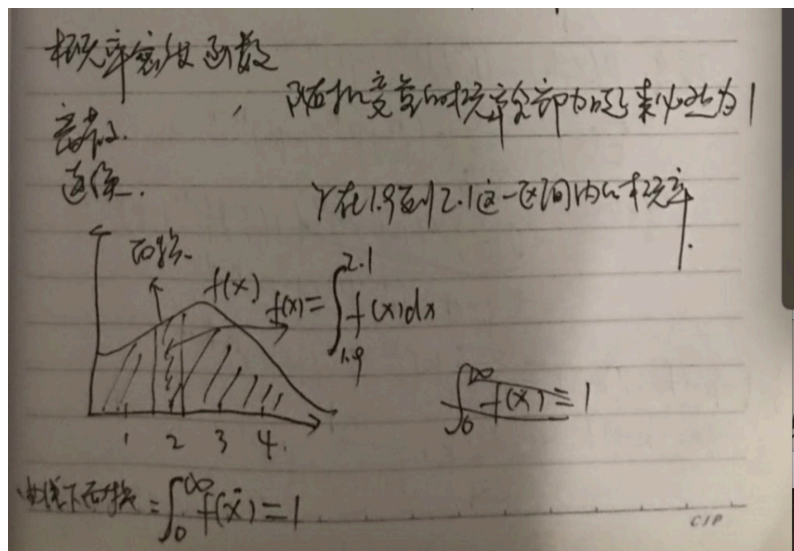 概率密度函数
随机变量的概率全部加起来必然为1
离散.
连续.
Y在1.9到2.1这一区间内的概率.
面积.
f(x)
f(x)=∫_{1.9}^{2.1} f(x)dx
1 2 3 4.
∫_0^∞ f(x)=1
曲线下面积=∫_0^∞ f(x)=1
CIP